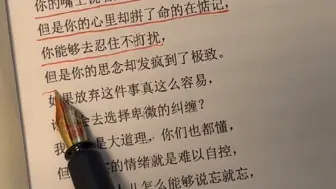 你的嘴上说着
但是你的心里却拼了命的在惦记,
你能够去忍住不打扰,
但是你的思念却发疯到了极致。
如果放弃这件事真这么容易,
会去选择卑微的纠缠?
是大道理,你们也都懂,
的情绪就是难以自控,
儿怎么能够说忘就忘,